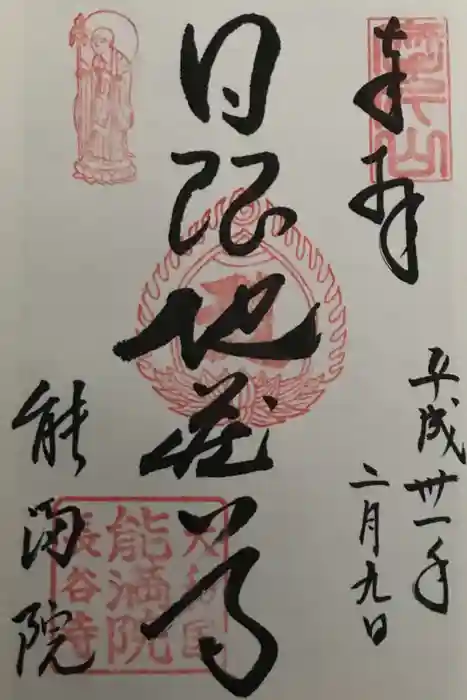 奉拝
平成卅一年
二月九日
日限地蔵尊
能満院
能満院
長谷寺